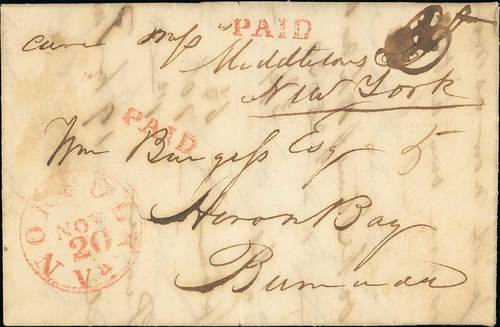 PAID
care Messrs
Middletons &
New York
PAID
Wm Burgess Esq 5
Heron Bay
Bermuda
NORFOLK
NOV
20
Va